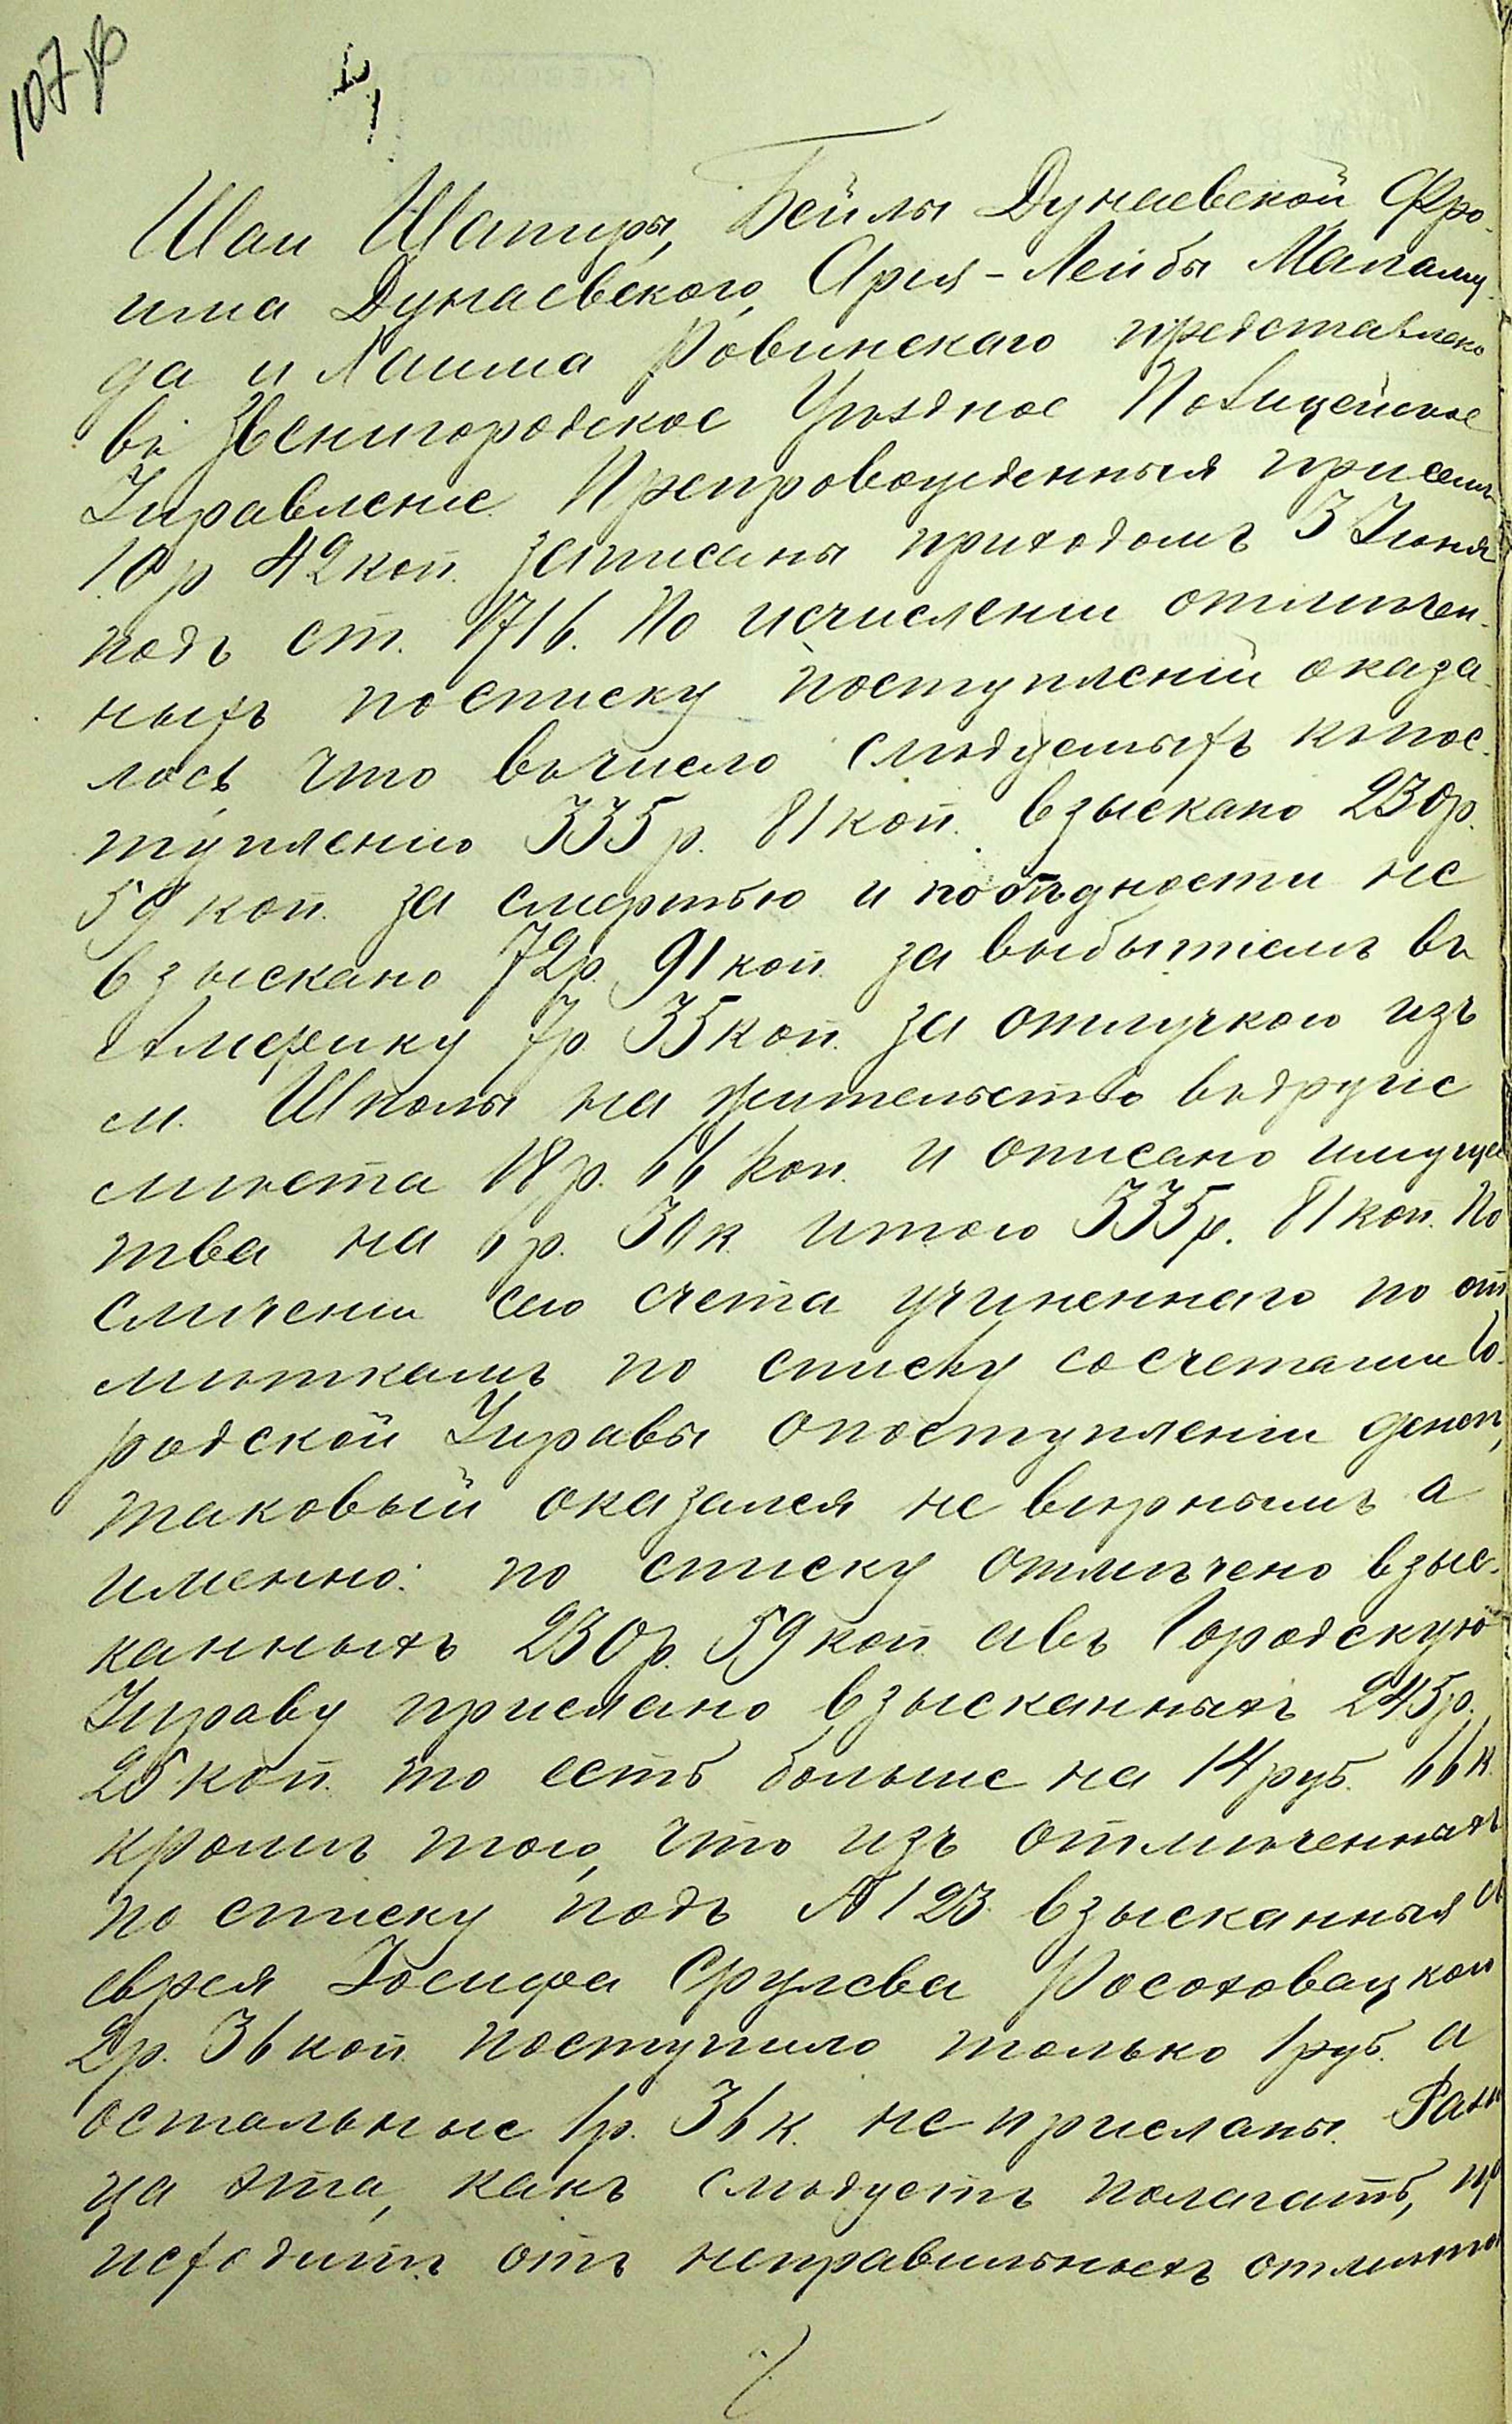 107 об
Шаи Шапиры, Бейлы Дунаевской Фро-
има Дунаевского, Арея-Лейбы Маламу-
да и Хаима Ровинскаго представлено
въ Звенигородское Уѣздное Полицейское
Управленіе. Препровожденныя при семъ
10 р 42 коп. записаны приходомъ 3 Іюня
подъ ст. 1716. По исчисленіи отмѣчен-
ныхъ по списку поступленій оказа-
лось, что въ число слѣдуемыхъ къ пос-
тупленію 335 р. 81 коп. взыскано 230 р.
59 коп. за смертью и по бѣдности не
взыскано 72 р. 91 коп. за выбытіемъ въ
Америку 7 р. 35 коп. за отлучкою изъ
м. Шполы на жительство въ другіе
мѣста 18 р. 66 коп. и описано имущес
тва на 6 р. 30 к. итого 335 р. 81 коп. По
сличеніи сего счета учиненнаго по от
мѣткамъ по списку со счетами Го-
родской Управы о поступленіи денегъ,
таковый оказался не вѣрнымъ а
именно: по списку отмѣчено взыс-
канныхъ 230 р. 59 коп. а въ Городскую
Управу прислано взысканныхъ 245 р.
25 коп. то есть больше на 14 руб. 66 к.
кромѣ того, что изъ отмѣченныхъ
по списку подъ № 123 взысканныя съ
еврея Іосифа Срулева Росоховацкаго
2 р. 36 коп. поступило только 1 руб. а
остальные 1 р. 36 к. не присланы. Разни
ца эта, какъ слѣдуетъ полагать, пр
исходитъ отъ неправильныхъ отмѣто